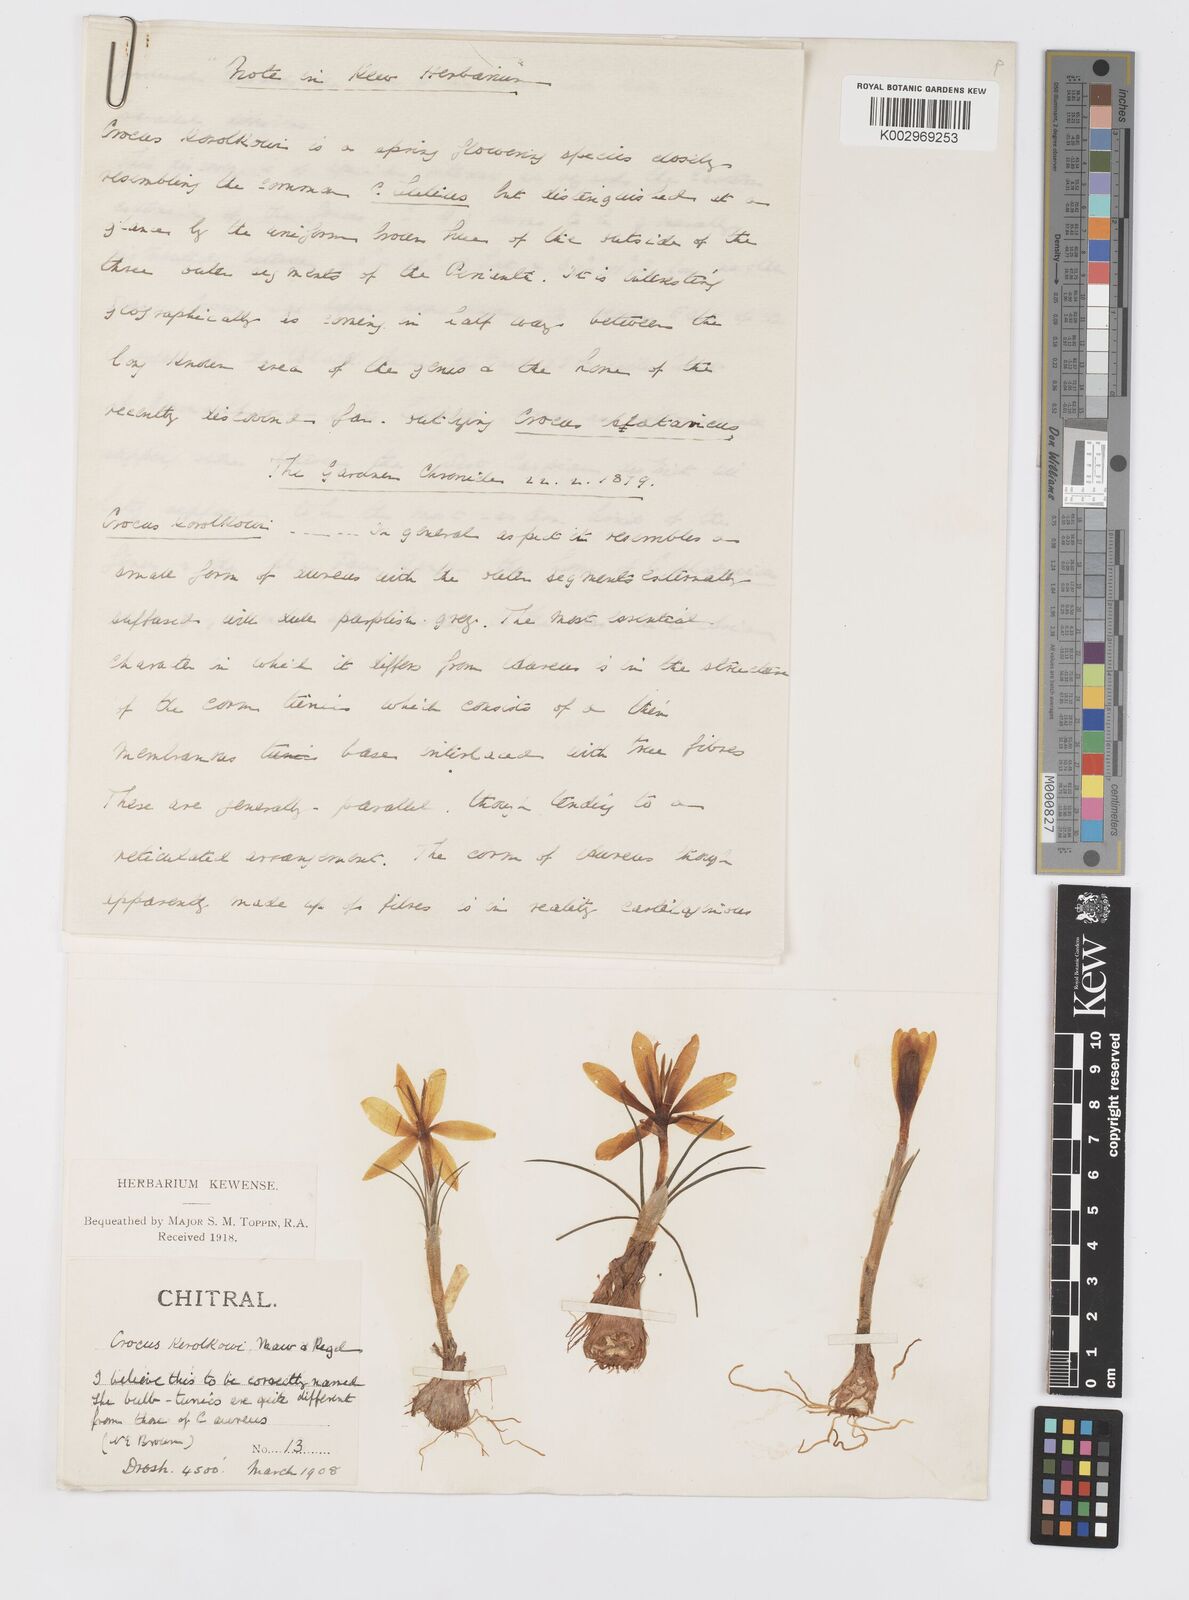 "Note in Kew Herbarium"
Crocus Korolkowi is a spring flowering species closely
resembling the common C. luteus but distinguished at a
glance by the uniform brown hue of the outside of the
three outer segments of the Perianth. It is interesting
geographically as coming in half way between the
long known area of the genus & the home of the
recently discovered far-outlying Crocus alatavicus,
The Gardner Chronicle 22. 2. 1879.
Crocus Korolkowi ------ in general aspect it resembles a
small form of aureus with the outer segments externally
suffused with dull purplish grey. The most essential
character in which it differs from Aureus is in the structure
of the corm tunic which consists of a thin
membranous tunic base interlaced with true fibres
These are generally parallel. though tending to a
reticulated arrangement. The corm of Aureus though
apparently made up of fibres is in reality cartilaginous
ROYAL BOTANIC GARDENS KEW
K002969253
HERBARIUM KEWENSE.
Bequeathed by MAJOR S. M. TOPPIN, R.A.
Received 1918.
CHITRAL.
Crocus Korolkowi. Maw & Regel
I believe this to be correctly named
The bulb-tunics are quite different
from those of C aureus
(N E Brown)
No. 13
Drosh. 4500'. March 1908
inches
Density
Don Williams
centimeters
M000827
Kew
Royal Botanic Gardens
0 1 2 3 4 5 6 7 8 9 10
cm
copyright reserved